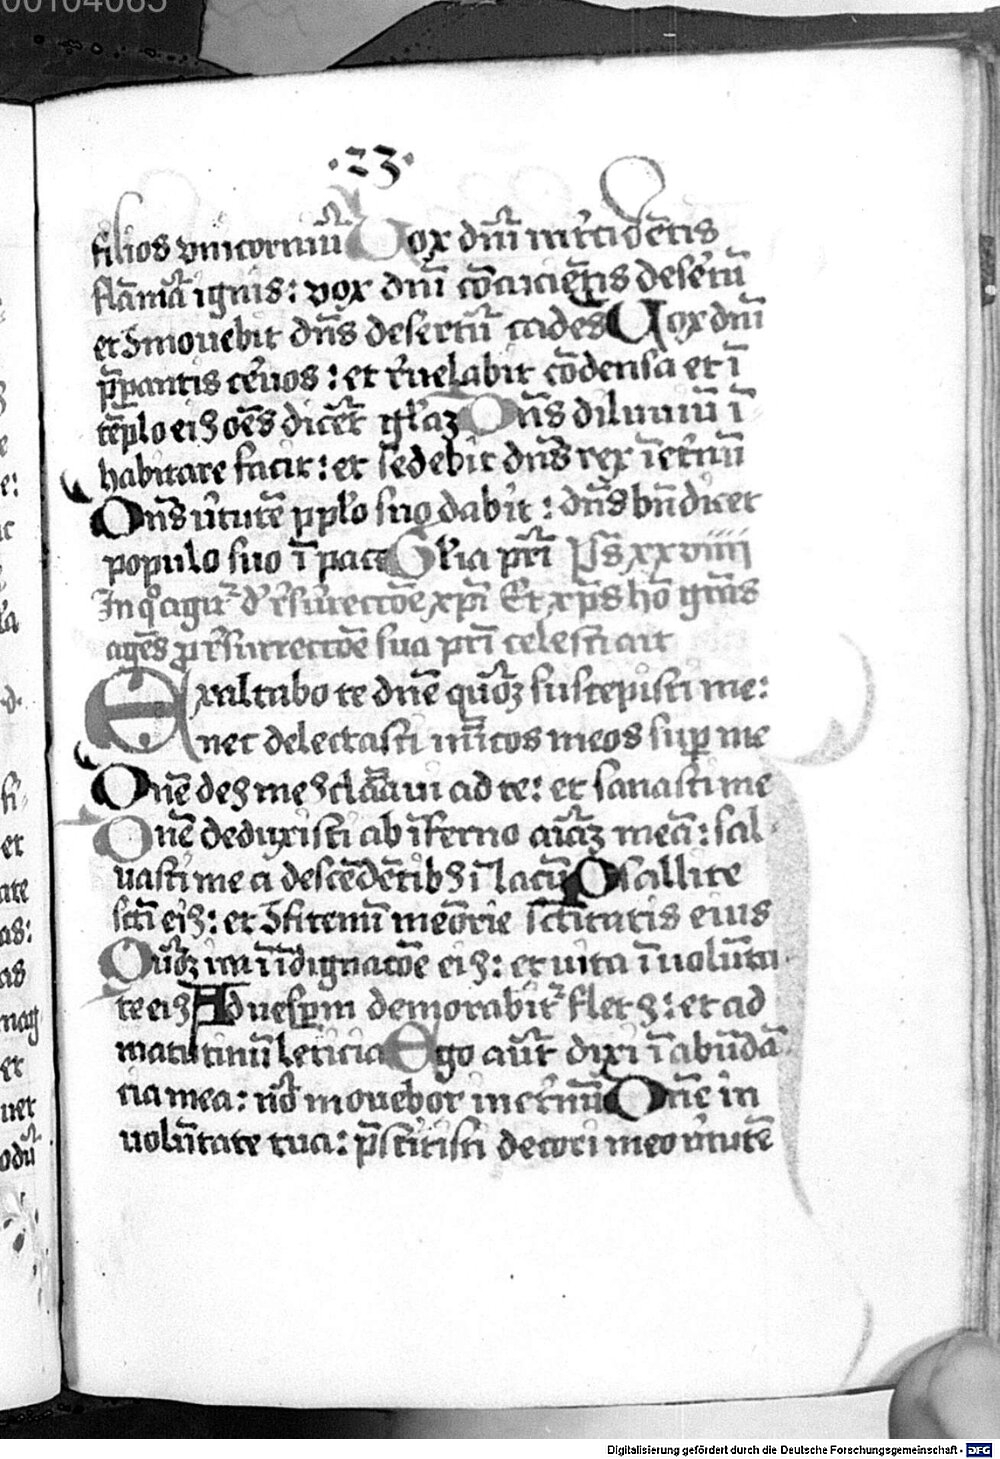 00104065
·23·
filios vnicorniū Vox dn̄i int̄cidētis
flāmā ignis: vox dn̄i ↄ̄cutiētis desētū
et ↄmouebit dn̄s desertū cades Vox dn̄i
p̄pantis cēuos: et r̄uelabit cōdensa et ī
tēplo eiꝰ oēs dicēt gl̄aꝫ Dn̄s diluuiū ī
habitare facit: et sedebit dn̄s rex ī et̄nū
Dn̄s v̄tutē ppl̄o suo dabit: dn̄s bn̄dicet
populo suo ī pace Gl̄ia pr̄i Ps̄ xxviiii
In qͦ agit᷑ d̄ r̄surrectōe xp̄i Et xp̄s hō gr̄as
agēs ꝓ r̄surrectōe sua pr̄i celesti ait
Exaltabo te dn̄e qm̄ suscepisti me:
nec delectasti inīcos meos suꝑ me
Dn̄e deꝰ meꝰ clāaui ad te: et sanasti me
Dn̄e deduxisti ab īferno aīaꝫ meā: sal
uasti me a descēdētibꝰ ī lacū Psallite
scī eiꝰ: et ↄfitemī meōrie sctītatis eius
Qm̄ ira ī īdignatōe eiꝰ: et uita ī uolūta
te eiꝰ Ad uesꝑum demorabit᷑ fletꝰ: et ad
matutinū leticia Ego aūt dixi ī abūdā
tia mea: nō mouebor in et̄nū Dn̄e in
uolūtate tua: p̄stitisti decori meo v̄tutē
Digitalisierung gefördert durch die Deutsche Forschungsgemeinschaft - DFG